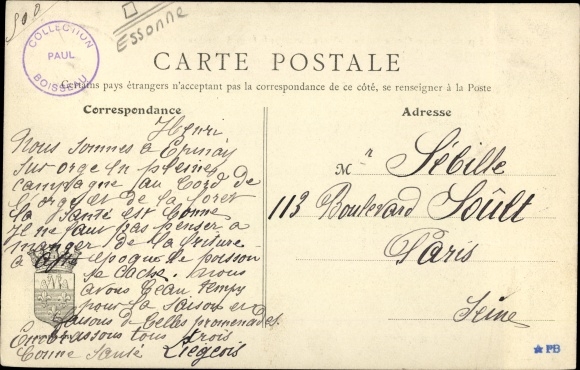 500
Essonne
COLLECTION
PAUL
BOISSEAU
CARTE POSTALE
Certains pays étrangers n'acceptant pas la correspondance de ce côté, se renseigner à la Poste
Correspondance
Henri
Nous sommes a Epinay
sur orge en pleine
campagne au bord de
l orge et de la foret
la Santé est bonne
il ne faut pas penser a
manger de la friture
a époque poisson
se cache. nous
avons beau temps
pour la saison et
faisons de belles promenades
Embrassons tous trois
bonne Santé Liegeois
Adresse
Mr Sébille
113 Boulevard Soült
Paris
Seine
PB